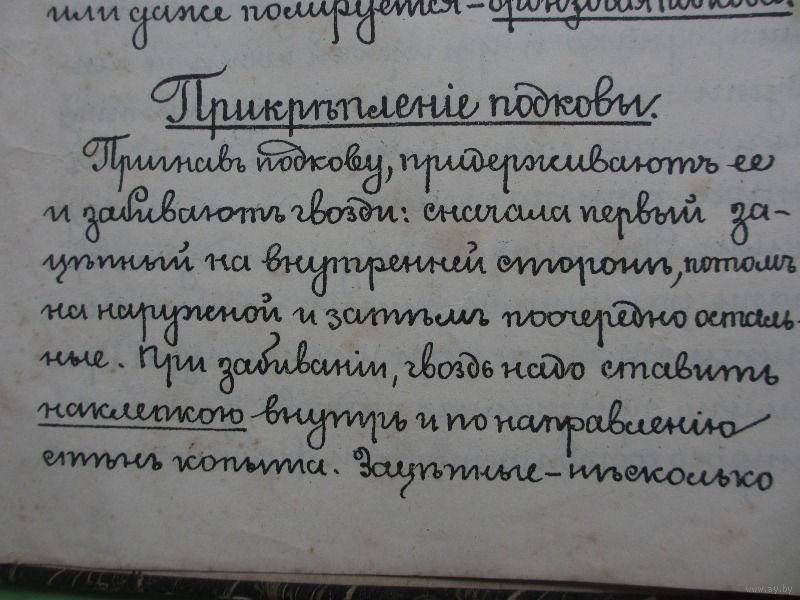 или даже полируется — бронзовая подкова.
Прикрѣпленіе подковы.
Пригнавъ подкову, придерживаютъ ее
и забиваютъ гвозди: сначала первый за-
цѣпный на внутренней сторонѣ, потомъ
на наружной и затѣмъ поочередно осталь-
ные. При забиваніи, гвоздь надо ставить
наклепкою внутрь и по направленію
стѣнъ копыта. Зацѣпные — нѣсколько
www.ay.by